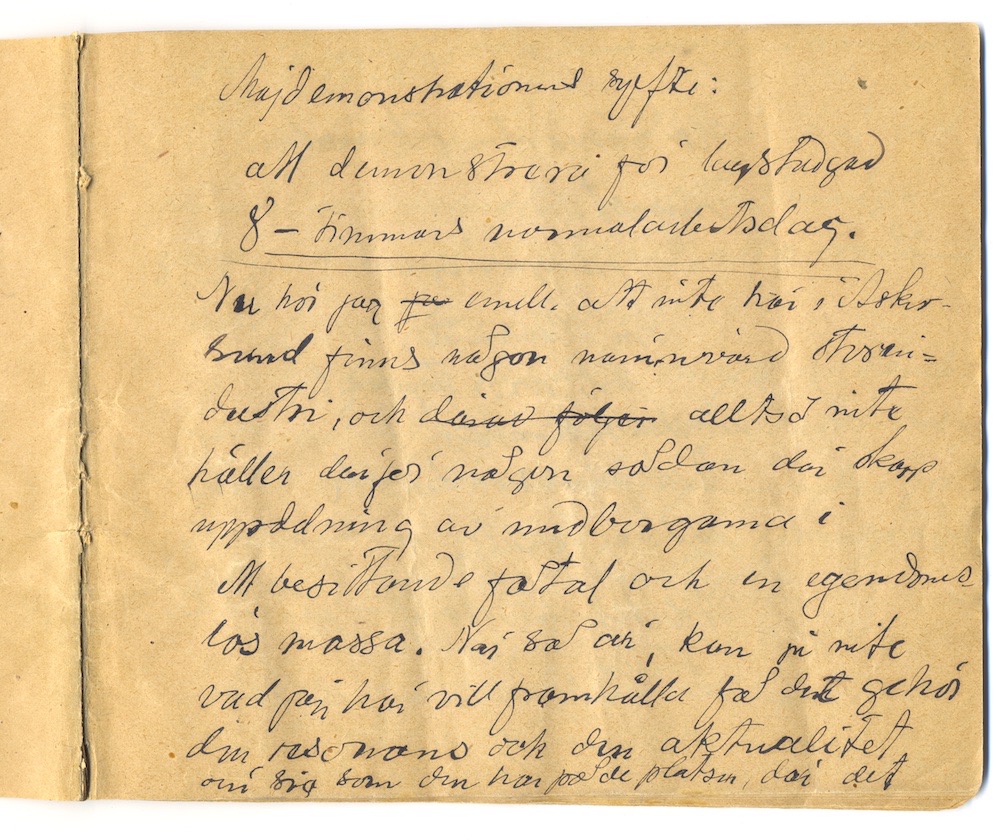 Majdemonstrationens syfte:
att demonstrera för lagstadgad
8-timmars normalarbetsdag.
Nu hör jag att inte här i Asker-
sund finns någon nämnvärd storin-
dustri, och därav följer alltså inte
håller därför någon sådan där skarp
uppdelning av medborgarna i
ett besittande fåtal och en egendoms-
lös massa. När så är, kan ju inte
vad jag här vill framhålla få det gehör
den resonans och den aktualitet
om sig som den har på de platser, där det